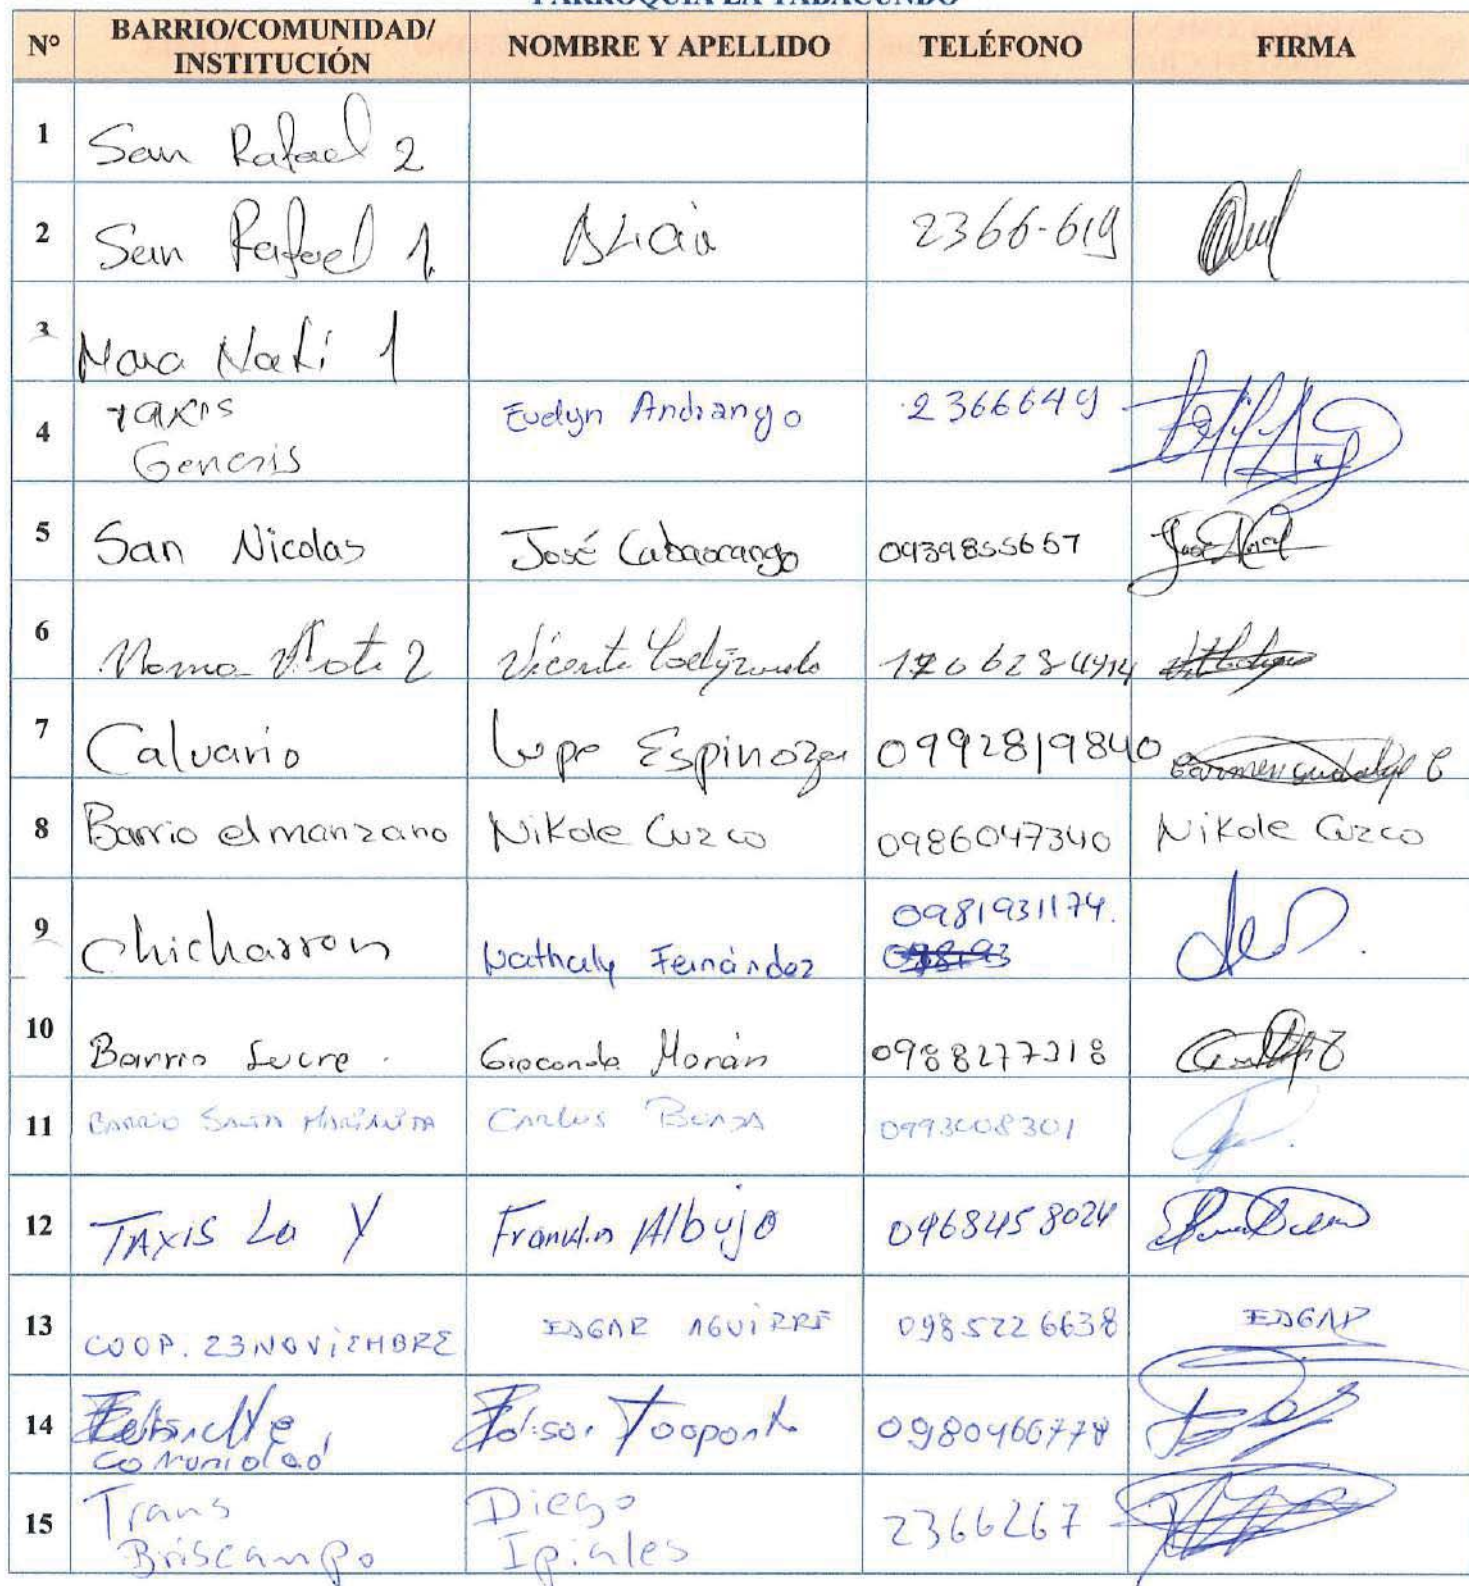 PARROQUIA LA TABACUNDO
N° BARRIO/COMUNIDAD/ INSTITUCIÓN NOMBRE Y APELLIDO TELÉFONO FIRMA
1 San Rafael 2
2 San Rafael 1. Alicia 2366-619
3 Mama Nati 1
4 Taxis Genesis Evelyn Andrango 2366649
5 San Nicolas José Cabascango 0939855657
6 Mama Nati 2 Vicente
7 Calvario Lupe Espinoza 0992819840
8 Barrio el manzano Nikole Cuzco 0986047340 Nikole Cuzco
9 Chicharron Nathaly Fernández 0981931174.
10 Barrio Sucre. Gioconda Morán 0988277318
11 BARRIO SANTA MARIANITA CARLOS 0993008301
12 TAXIS La Y Franklin Albuja 0968458024
13 COOP. 23 NOVIEMBRE EDGAR AGUIRRE 0985226638 EDGAR
14 Comunidad Edison
15 Trans Briscampo Diego Ipiales 2366267